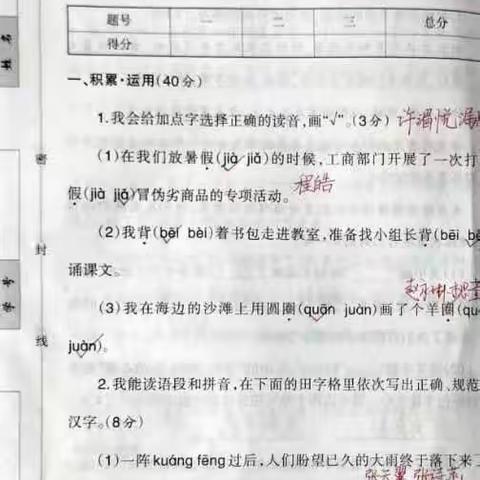 题号 一 二 三 总分
得分
一、积累·运用(40分)
1.我会给加点字选择正确的读音,画“√”。(3分) 许渭悦
(1)在我们放暑假(jià jiǎ)的时候,工商部门开展了一次打
假(jià jiǎ)冒伪劣商品的专项活动。 程皓
(2)我背(bēi bèi)着书包走进教室,准备找小组长背(bēi bè
诵课文。
(3)我在海边的沙滩上用圆圈(quān juàn)画了个羊圈(qu
juàn)。
2.我能读语段和拼音,在下面的田字格里依次写出正确、规范
汉字。(8分)
(1)一阵kuáng fēng过后,人们盼望已久的大雨终于落下来了
姓名
密
封
线
学号